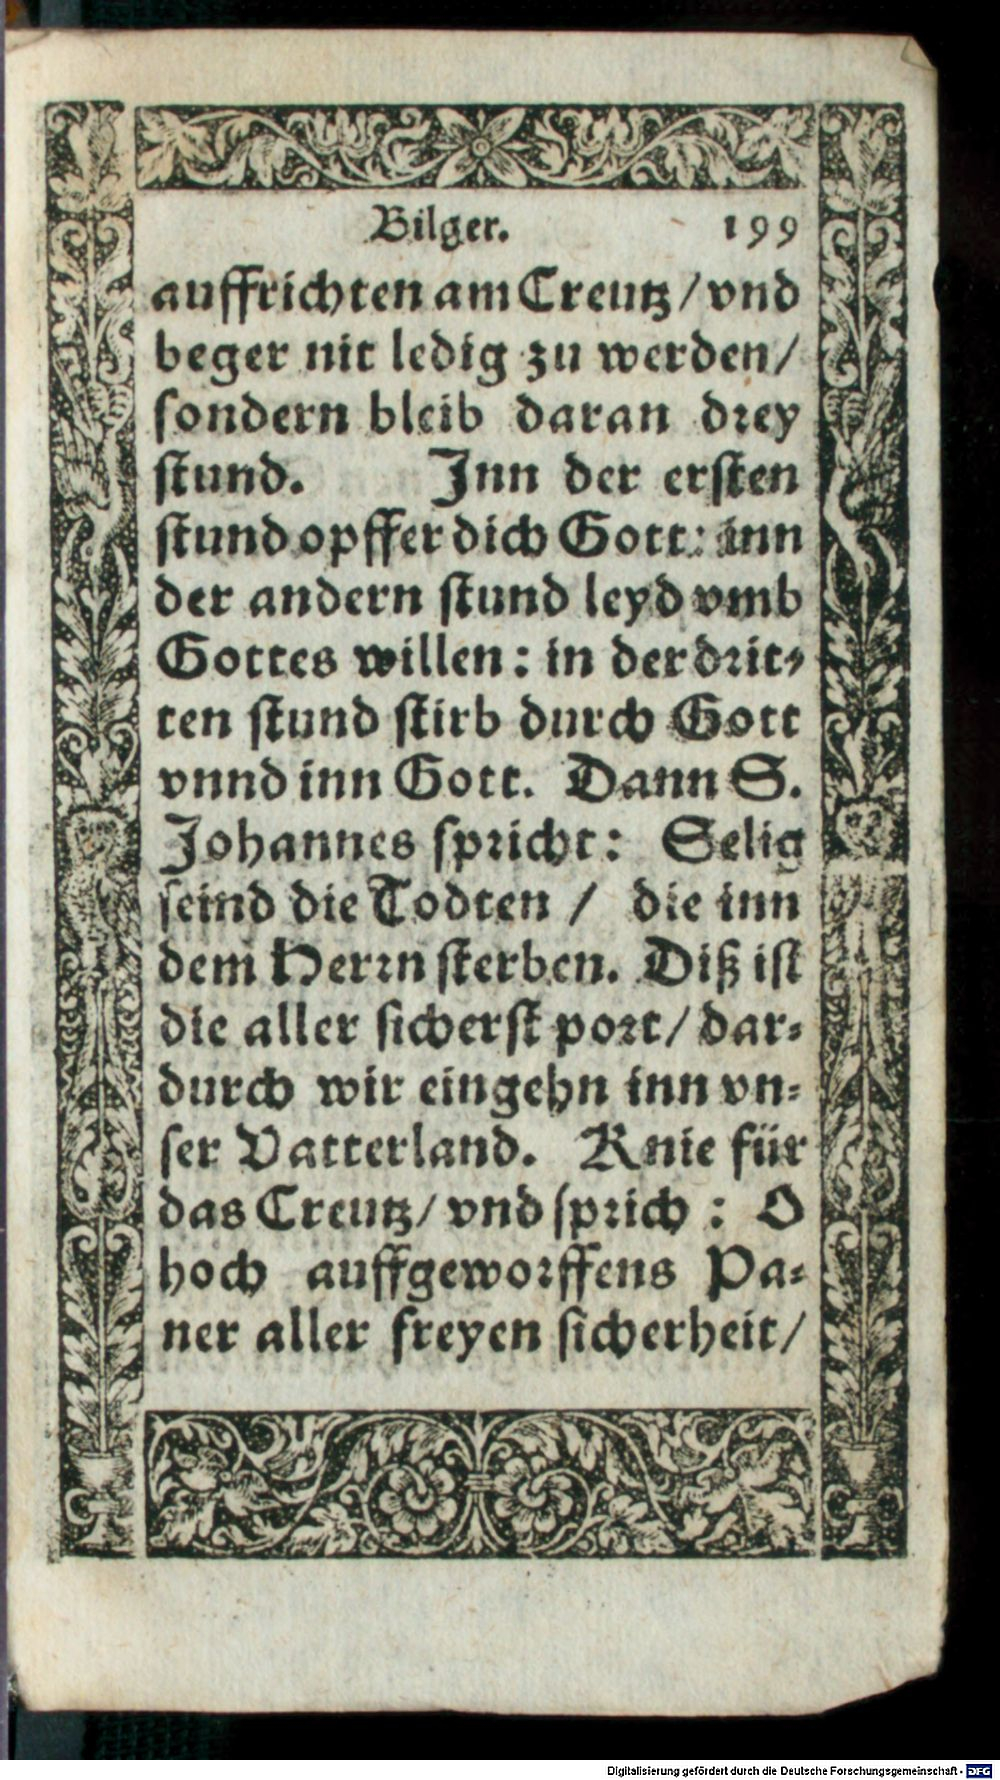 Bilger. 199
auffrichten am Creutz / vnd
beger nit ledig zu werden /
sondern bleib daran drey
stund. Jnn der ersten
stund opffer dich Gott: inn
der andern stund leyd vmb
Gottes willen: in der drit-
ten stund stirb durch Gott
vnnd inn Gott. Dann S.
Johannes spricht: Selig
seind die Todten / die inn
dem Herrn sterben. Diß ist
die aller sicherst port / dar-
durch wir eingehn inn vn-
ser Vatterland. Knie für
das Creutz / vnd sprich : O
hoch auffgeworffens Pa-
ner aller freyen sicherheit /
Digitalisierung gefördert durch die Deutsche Forschungsgemeinschaft - DFG